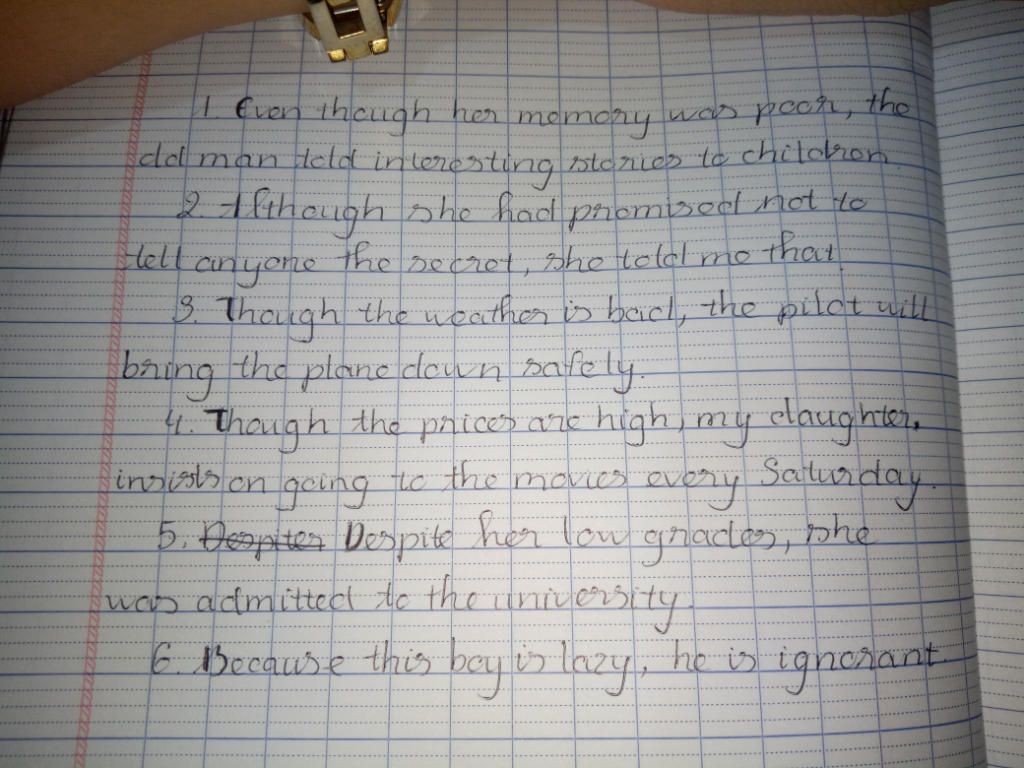 1. Even though her memory was poor, the
old man told interesting stories to children
2. Although she had promised not to
tell anyone the secret, she told me that
3. Though the weather is bad, the pilot will
bring the plane down safely.
4. Though the prices are high, my daughter,
insists on going to the movies every Saturday.
5. Despiter Despite her low grades, she
was admitted to the university.
6. Because this boy is lazy, he is ignorant.